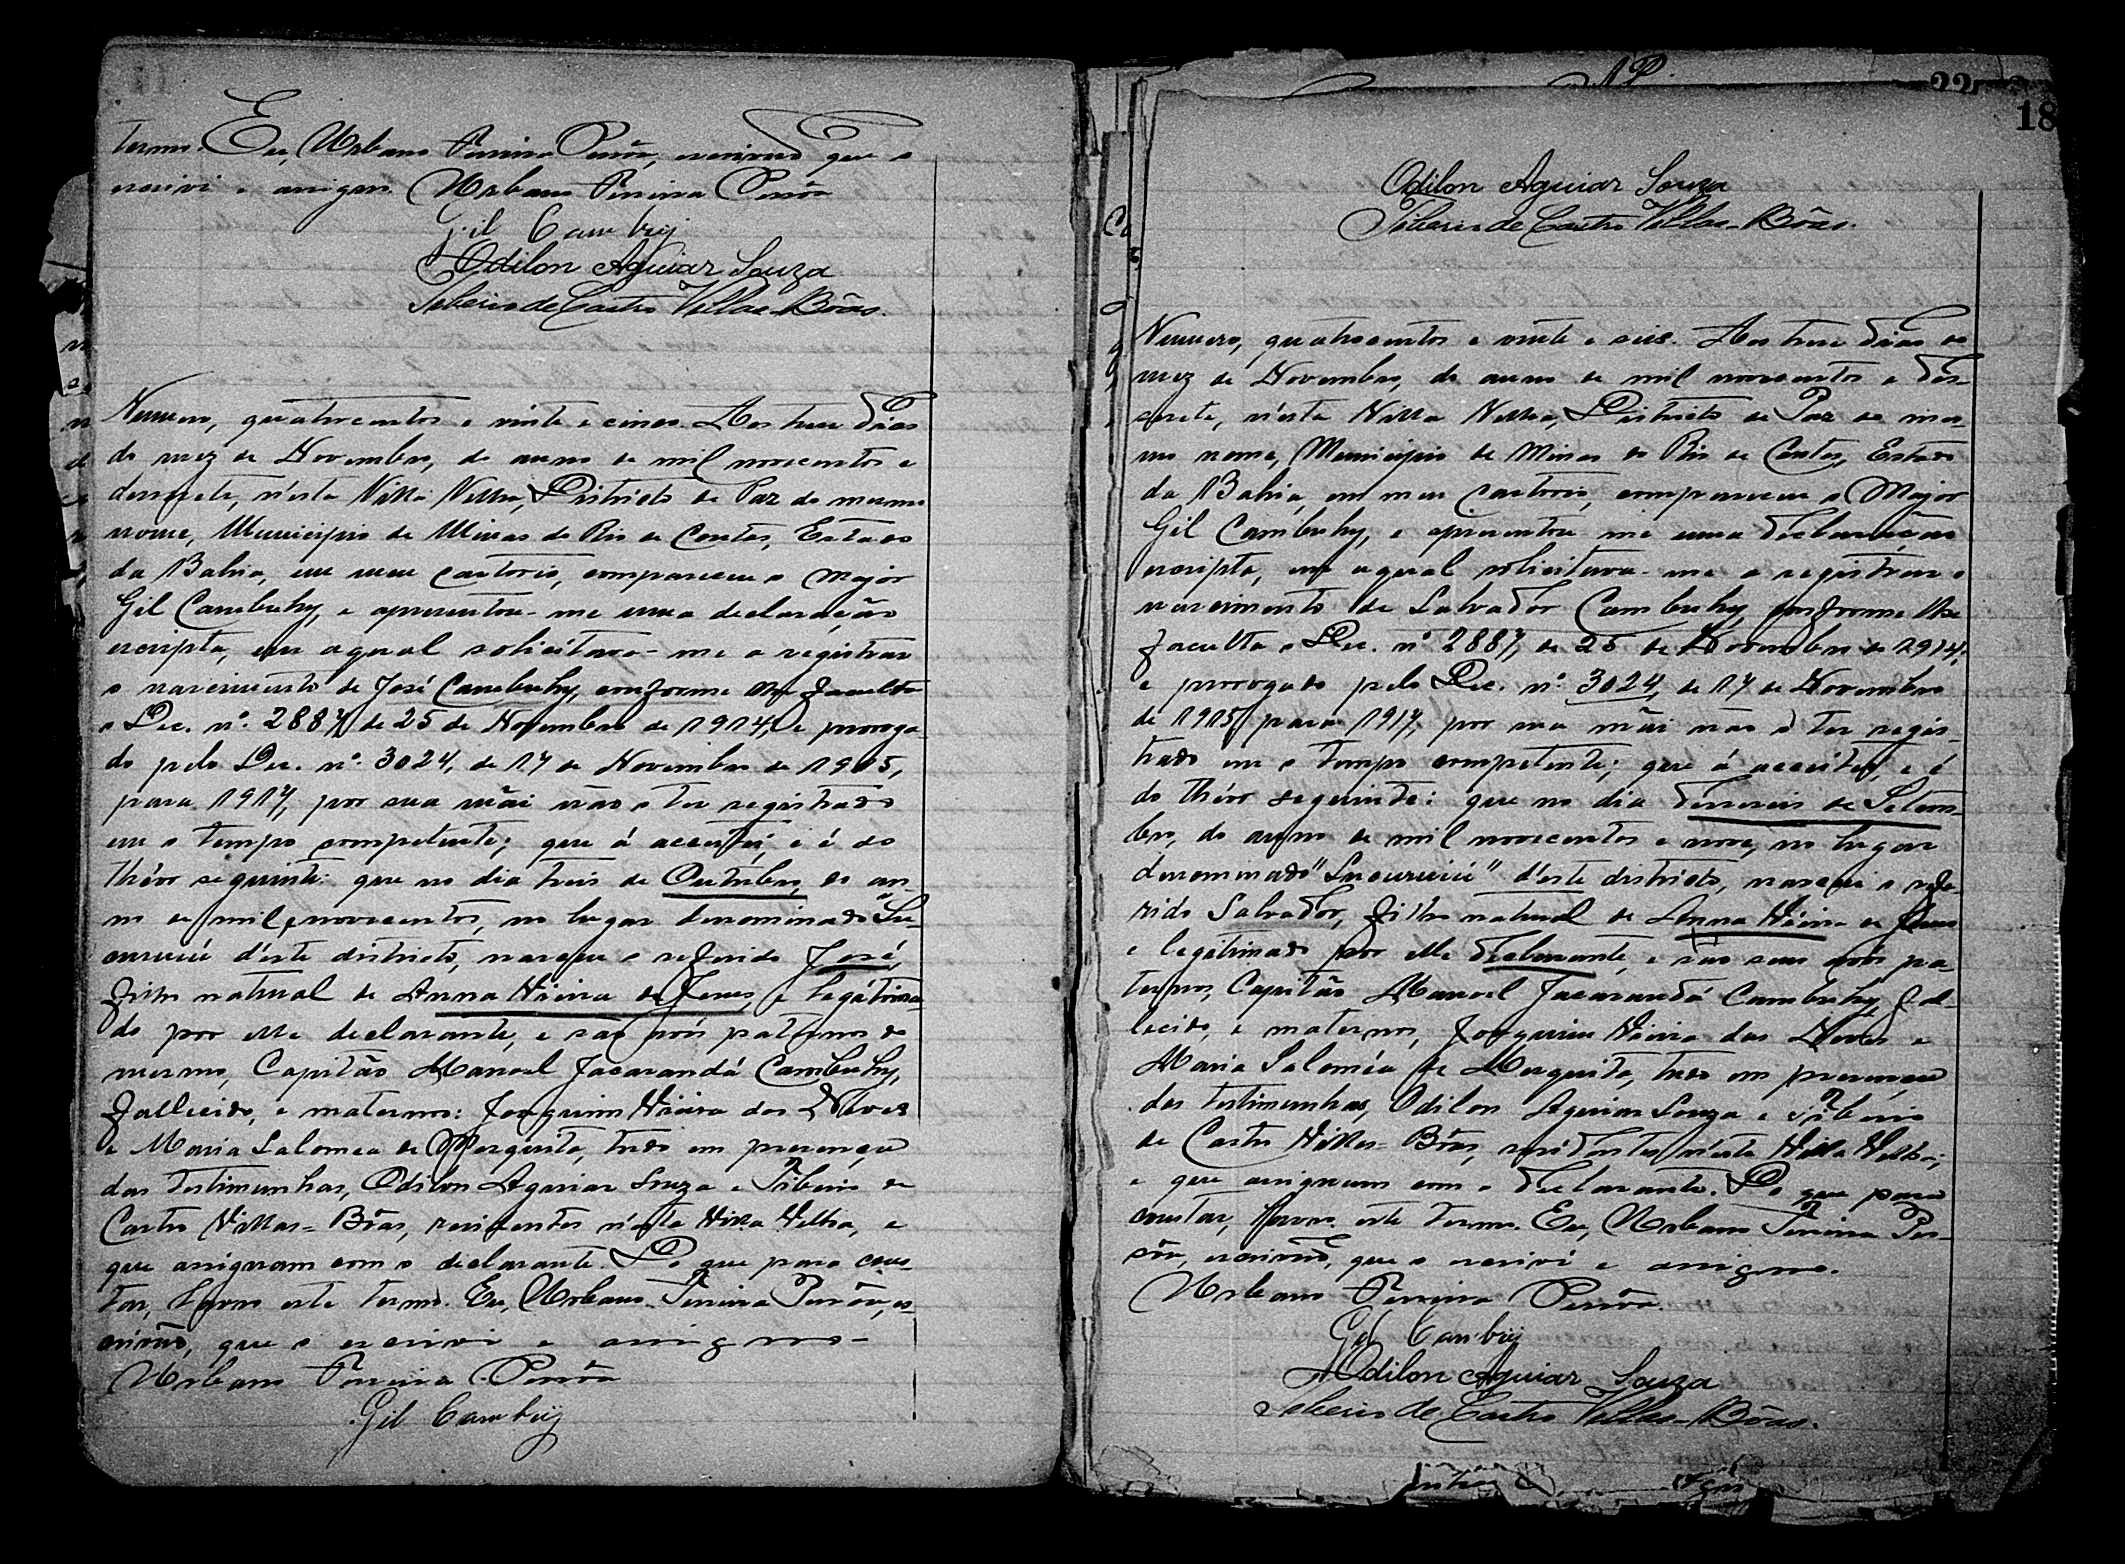 termo. Eu, Urbano Pereira Pessôa, escrivão que o
escrivi e assigno. Urbano Pereira Pessôa
Gil Cambuy
Odilon Aguiar Souza
Tiberio de Castro Villas-Bôas.
Numero, quatrocentos e vinte e cinco. Aos treze dias
do mez de Novembro, do anno de mil novecentos e
desesete, n'esta Villa Velha, Districto de Paz do mesmo
nome, Municipio de Minas do Rio de Contas, Estado
da Bahia, em meu cartorio, compareceu o Major
Gil Cambuhy, e apresentou-me uma declaração
escripta, em a qual solicitava-me a registrar
o nascimento de José Cambuhy, conforme lhe faculta
o Dec. nº. 2887, de 25 de Novembro de 1914, e proroga-
do pelo Dec. nº. 3024, de 17 de Novembro de 1915,
para 1917, por sua mãi não o ter registrado
em o tempo competente; que á acceitei, e é do
théor seguinte: que no dia treis de Outubro, do an-
no de mil e novecentos, no lugar denominado "Su-
curuiú d'este districto, nasceu o referido José,
filho natural de Anna Vieira de Jesus, e legitima-
do por elle declarante, e são avós paternos do
mesmo, Capitão Manoel Jacarandá Cambuhy,
fallecido, e maternos: Joaquim Vieira das Neves
e Maria Saloméa de Mesquita, tudo em presença
das testimunhas, Odilon Aguiar Souza e Tiberio de
Castro Villas-Bôas, residentes n'esta Villa Velha, e
que assignam com o declarante. Do que para cons-
tar, lavro este termo. Eu, Urbano Pereira Pessôa, es-
crivão, que o escrivi e assigno-
Urbano Pereira Pessôa
Gil Cambuy
22
18
Odilon Aguiar Souza
Tiberio de Castro Villas-Bôas.
Numero, quatrocentos e vinte e seis. Aos treze dias do
mez de Novembro, do anno de mil novecentos e des-
esete, n'esta Villa Velha, Districto de Paz do mes-
mo nome, Municipio de Minas do Rio de Contas, Estado
da Bahia, em meu cartorio, compareceu o Major
Gil Cambuhy, e apresentou-me uma declaração
escripta, em a qual solicitava-me a registrar o
nascimento de Salvador Cambuhy, conforme lhe
faculta o Dec. nº 2887, de 25 de Novembro de 1914,
e prorogado pelo Dec. nº. 3024, de 17 de Novembro
de 1915, para 1917, por sua mãi não o ter regis-
trado em o tempo competente; que á acceitei, e é
do théor seguinte: que no dia desesseis de Setem-
bro, do anno de mil novecentos e nove, no lugar
denominado "Sucuruiú" d'este districto, nasceu o refe-
rido Salvador, filho natural de Anna Vieira de Jesus
e legitimado por elle declarante, e são seus avós pa-
ternos, Capitão Manoel Jacarandá Cambuhy, fal-
lecido, e maternos, Joaquim Vieira das Neves e
Maria Saloméa de Mesquita, tudo em presença
das testimunhas, Odilon Aguiar Souza e Tiberio
de Castro Villas-Bôas, residentes n'esta Villa Velha,
e que assignam com o declarante. Do que para
constar, lavro este termo. Eu, Urbano Pereira Pes-
sôa, escrivão, que o escrivi e assigno.
Urbano Pereira Pessôa
Gil Cambuy
Odilon Aguiar Souza
Tiberio de Castro Villas-Bôas.